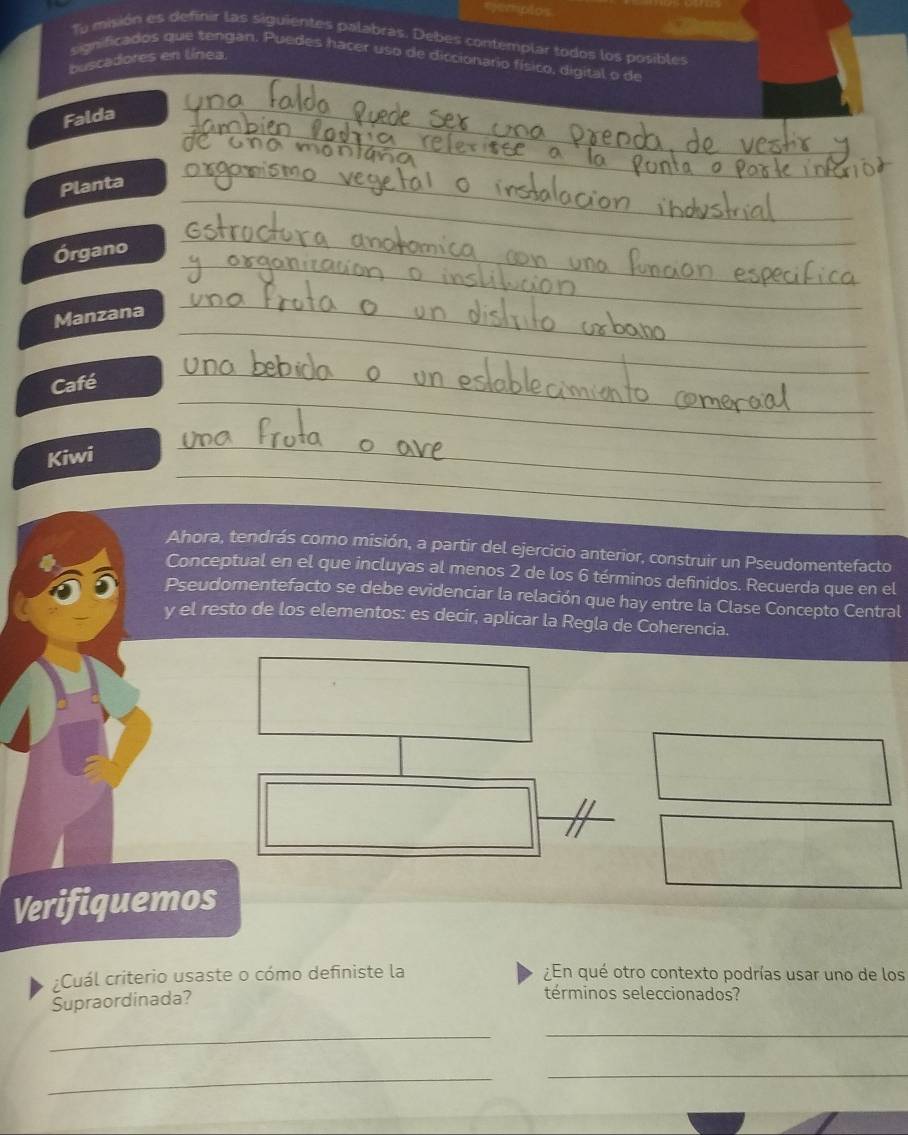 ejemplos
Tu misión es definir las siguientes palabras. Debes contemplar todos los posibles
significados que tengan. Puedes hacer uso de diccionario físico, digital o de
buscadores en línea.
Falda
una falda Puede ser una prenda, de vestir y
tambien Podria referirse a la Punta o Parte inferior
de una montana
Planta
organismo vegetal o instalacion industrial
Órgano
Estructura anatomica con una funcion especifica
y organizacion o institucion
Manzana
una fruta o un distrito urbano
Café
una bebida o un establecimiento comercial
Kiwi
una fruta o ave
Ahora, tendrás como misión, a partir del ejercicio anterior, construir un Pseudomentefacto
Conceptual en el que incluyas al menos 2 de los 6 términos definidos. Recuerda que en el
Pseudomentefacto se debe evidenciar la relación que hay entre la Clase Concepto Central
y el resto de los elementos: es decir, aplicar la Regla de Coherencia.
Verifiquemos
¿Cuál criterio usaste o cómo definiste la
Supraordinada?
¿En qué otro contexto podrías usar uno de los
términos seleccionados?